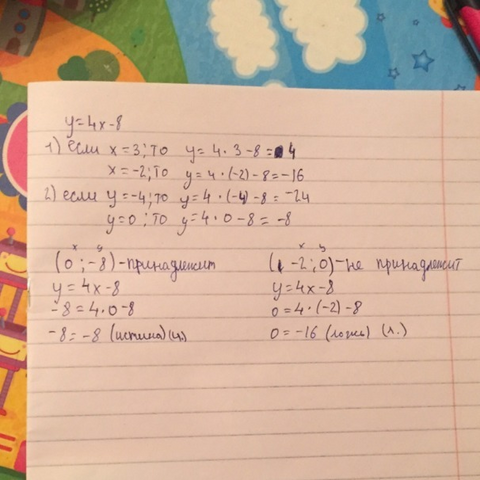 y=4x-8
1) если x=3; то y=4·3-8=4
x=-2; то y=4·(-2)-8=-16
2) если y=-4; то y=4·(-4)-8=-24
y=0; то y=4·0-8=-8
x y
(0;-8)-принадлежит
y=4x-8
-8=4·0-8
-8=-8 (истина) (и.)
x y
(-2;0)-не принадлежит
y=4x-8
0=4·(-2)-8
0=-16 (ложь) (л.)